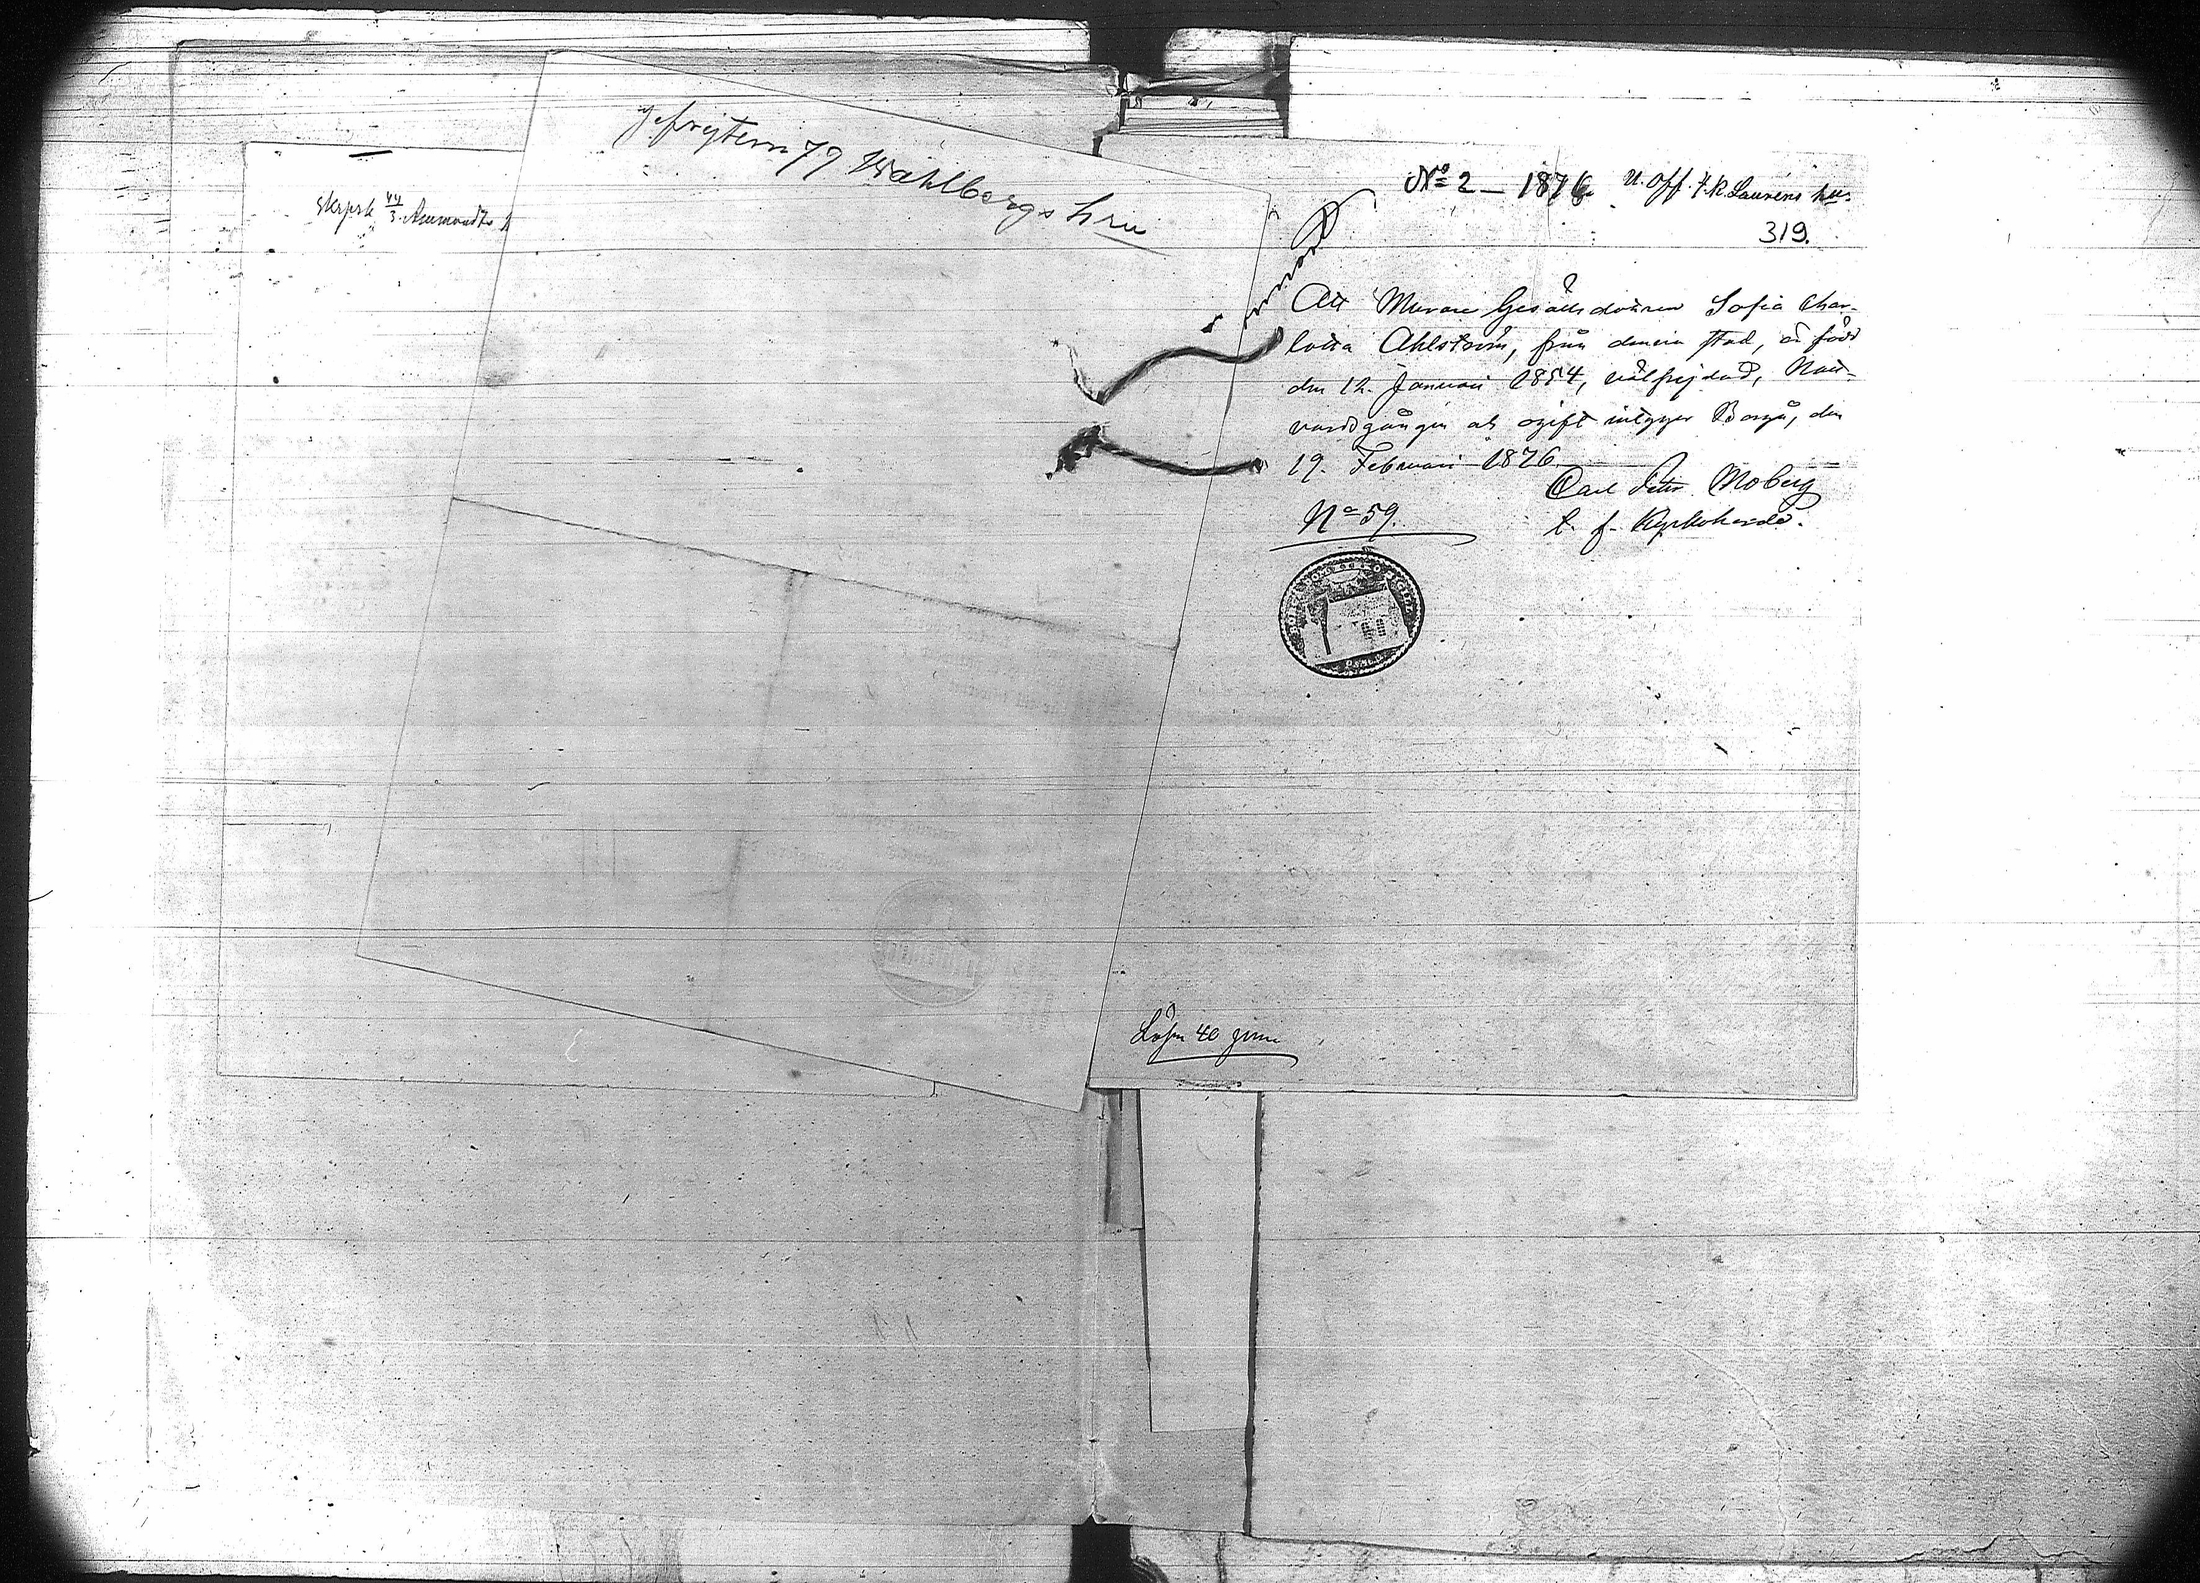 Gefrejtern 77 Wahlbergs hru
skrfsk 44/3
No 2 – 1876. U. Off. F. R. Laurens hu.
319.
Att Murare Gesällsdottren Sofia Char-
lotta Ahlström, från denna stad, är född
den 12. Januari 1854, välfrejdad, Natt-
vardsgången och ogift intygar Borgå, den
19. Februari 1876
Carl Petter Moberg
t. f. Kyrkoherde.
No 59.
Lösen 40 penni